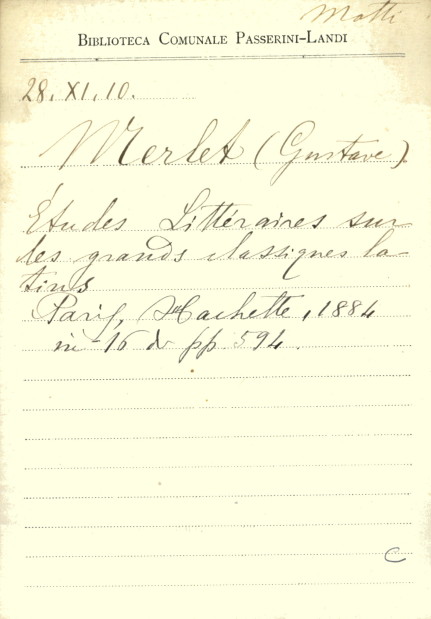 Motti
BIBLIOTECA COMUNALE PASSERINI-LANDI
28.XI.10.
Merlet (Gustave).
Études Littéraires sur
les grands classiques la-
tins
Paris, Hachette, 1884
in-16 di pp. 594.
C